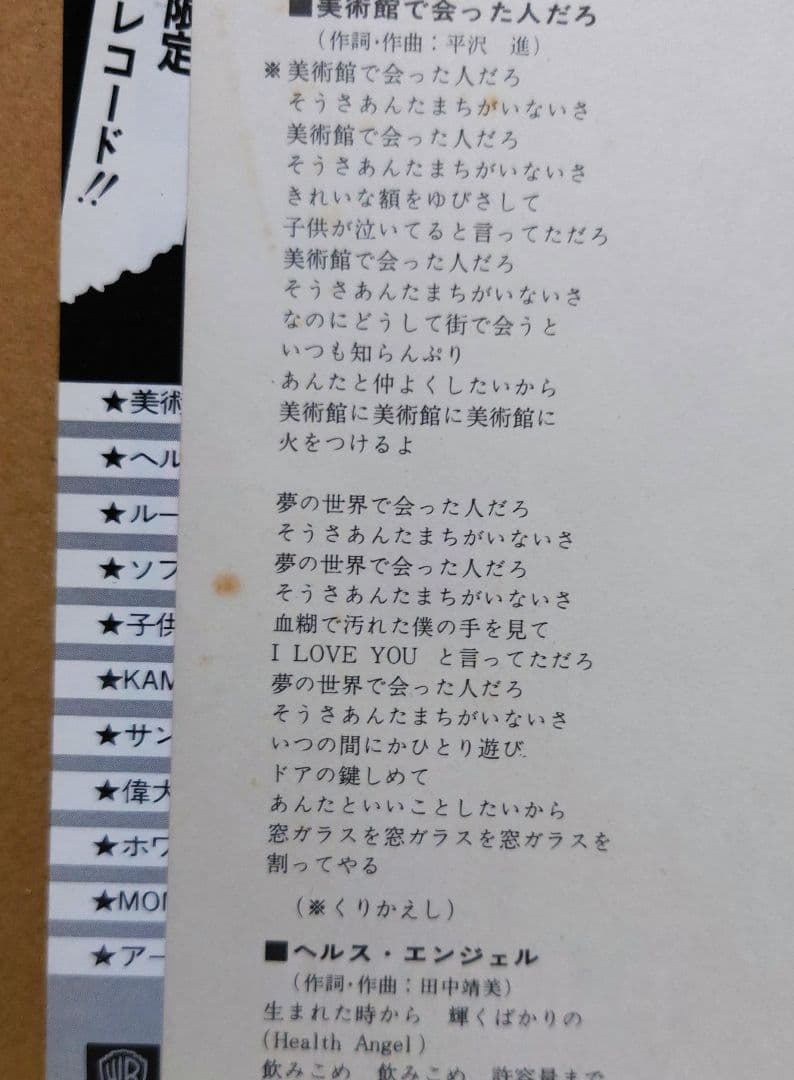 限定
レコード!!
★美術
★ヘル
★ルー
★ソフ
★子供
★KAM
★サン
★偉大
★ホワ
★MON
★アー
■美術館で会った人だろ
(作詞・作曲：平沢 進)
※美術館で会った人だろ
そうさあんたまちがいないさ
美術館で会った人だろ
そうさあんたまちがいないさ
きれいな額をゆびさして
子供が泣いてると言ってただろ
美術館で会った人だろ
そうさあんたまちがいないさ
なのにどうして街で会うと
いつも知らんぷり
あんたと仲よくしたいから
美術館に美術館に美術館に
火をつけるよ
夢の世界で会った人だろ
そうさあんたまちがいないさ
夢の世界で会った人だろ
そうさあんたまちがいないさ
血糊で汚れた僕の手を見て
I LOVE YOU と言ってただろ
夢の世界で会った人だろ
そうさあんたまちがいないさ
いつの間にかひとり遊び
ドアの鍵しめて
あんたといいことしたいから
窓ガラスを窓ガラスを窓ガラスを
割ってやる
(※くりかえし)
■ヘルス・エンジェル
(作詞・作曲：田中靖美)
生まれた時から 輝くばかりの
(Health Angel)
飲みこめ 飲みこめ 許容量まで